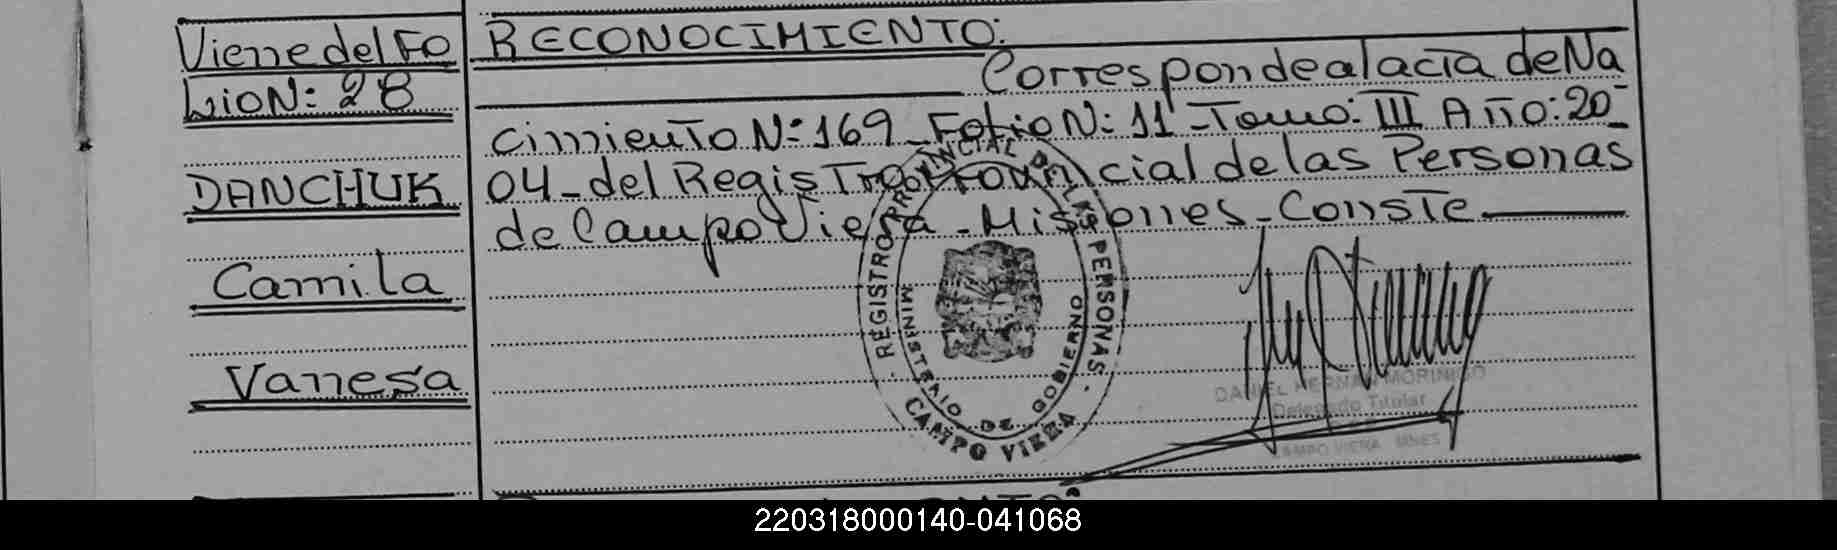 Viene del Fo
lio N: 28
DANCHUK
Camila
Vanesa
RECONOCIMIENTO:
Corresponde al acta de Na
cimiento N: 169 _ Folio N: 11 - Tomo: III Año: 20-
04 _ del Registro Provincial de las Personas
de Campo Viera _ Misiones _ Conste
REGISTRO PROVINCIAL DE LAS PERSONAS
MINISTERIO DE GOBIERNO
CAMPO VIERA
DANIEL HERNAN MORINIGO
Delegado Titular
CAMPO VIERA MNES
220318000140-041068